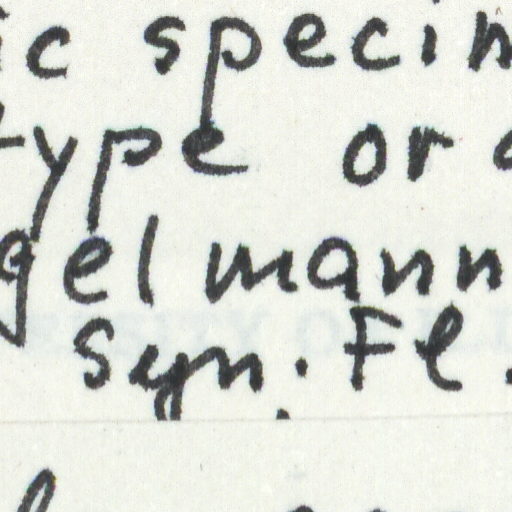 ic specin
type or
gelmann
Syn. Fl.